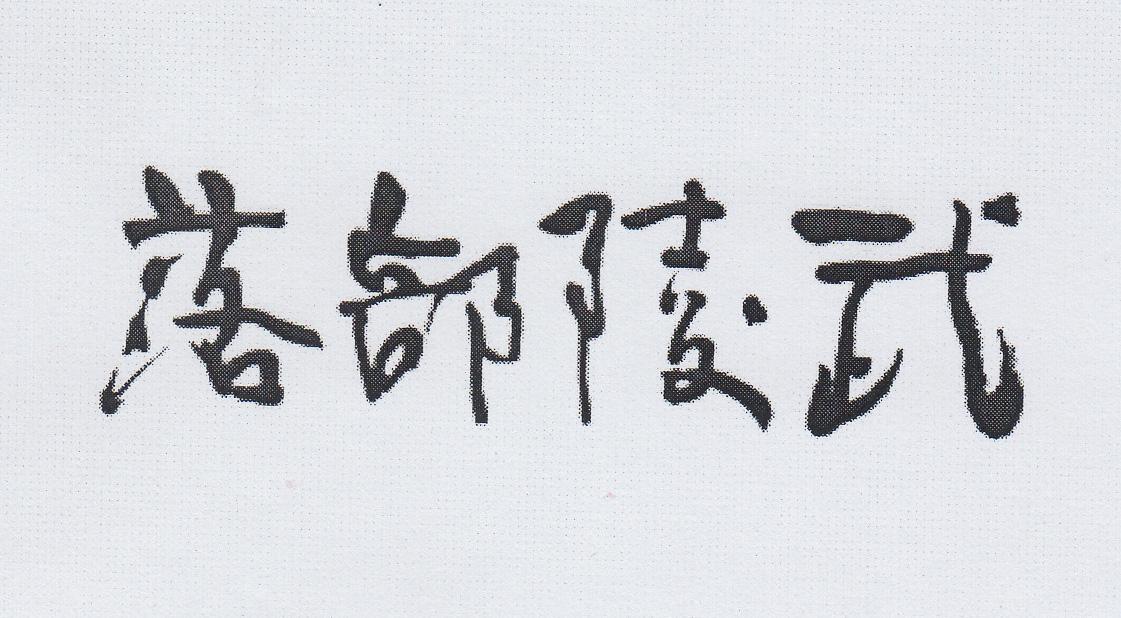 落部陵武